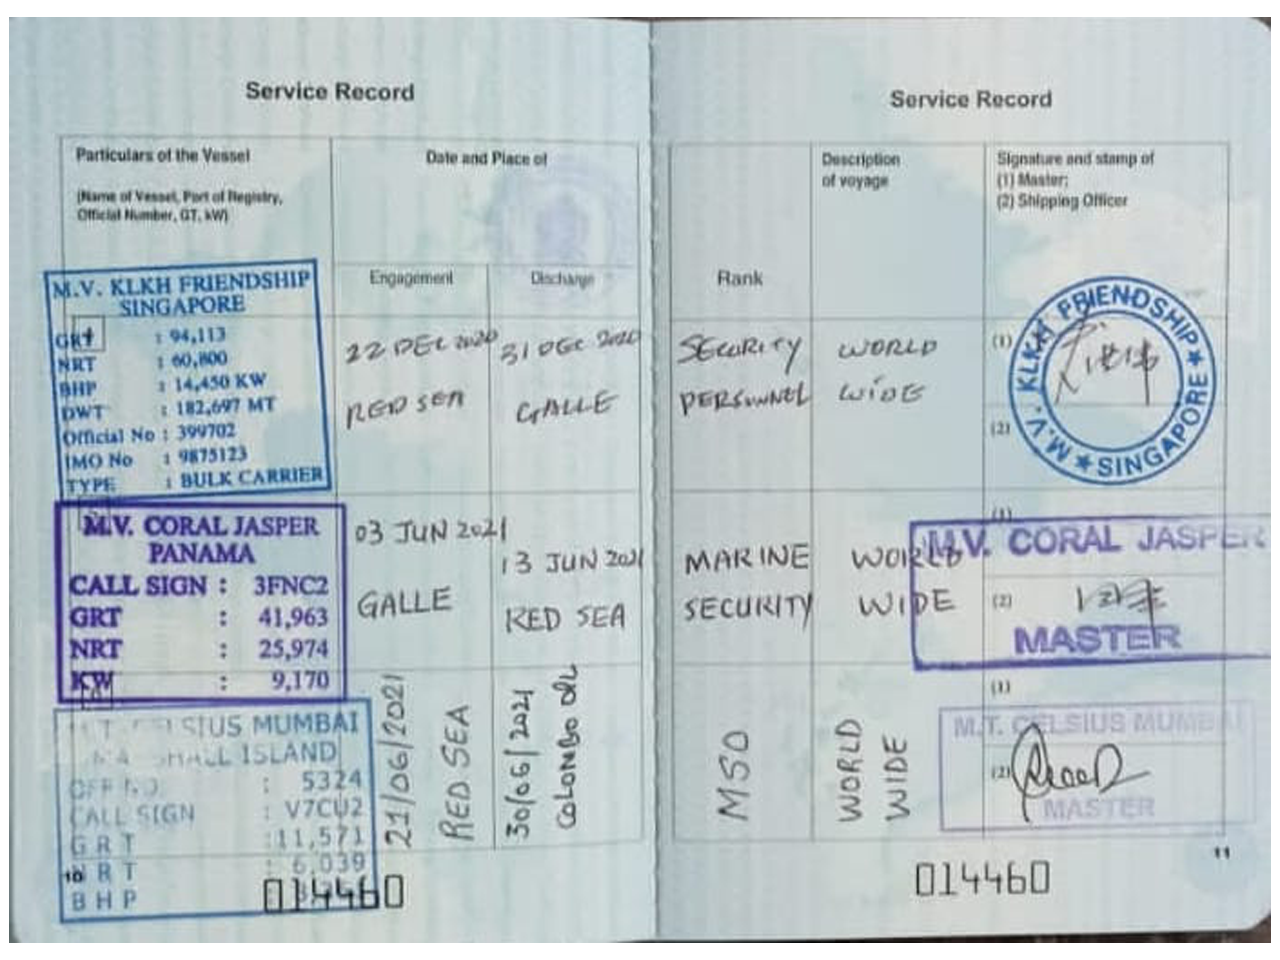 Service Record
Particulars of the Vessel
(Name of Vessel, Port of Registry,
Official Number, GT, kW)
Date and Place of
Engagement
Discharge
M.V. KLKH FRIENDSHIP
SINGAPORE
GRT : 94,113
NRT : 60,800
BHP : 14,450 KW
DWT : 182,697 MT
Official No : 399702
IMO No : 9875123
TYPE : BULK CARRIER
22 DEC 2020
RED SEA
31 DEC 2020
GALLE
M.V. CORAL JASPER
PANAMA
CALL SIGN : 3FNC2
GRT : 41,963
NRT : 25,974
KW : 9,170
03 JUN 2021
GALLE
13 JUN 2021
RED SEA
M.T. CELSIUS MUMBAI
MARSHALL ISLAND
OFF NO. : 5324
CALL SIGN : V7CU2
GRT : 11,571
NRT : 6,039
BHP
21/06/2021
RED SEA
30/06/2021
COLOMBO OPL
10
014460
Service Record
Rank
Description
of voyage
Signature and stamp of
(1) Master;
(2) Shipping Officer
SECURITY
PERSONNEL
WORLD
WIDE
(1)
(2)
M.V. KLKH FRIENDSHIP
SINGAPORE
MARINE
SECURITY
WORLD
WIDE
(1)
(2)
M.V. CORAL JASPER
MASTER
MSO
WORLD
WIDE
(1)
(2)
M.T. CELSIUS MUMBAI
MASTER
11
014460